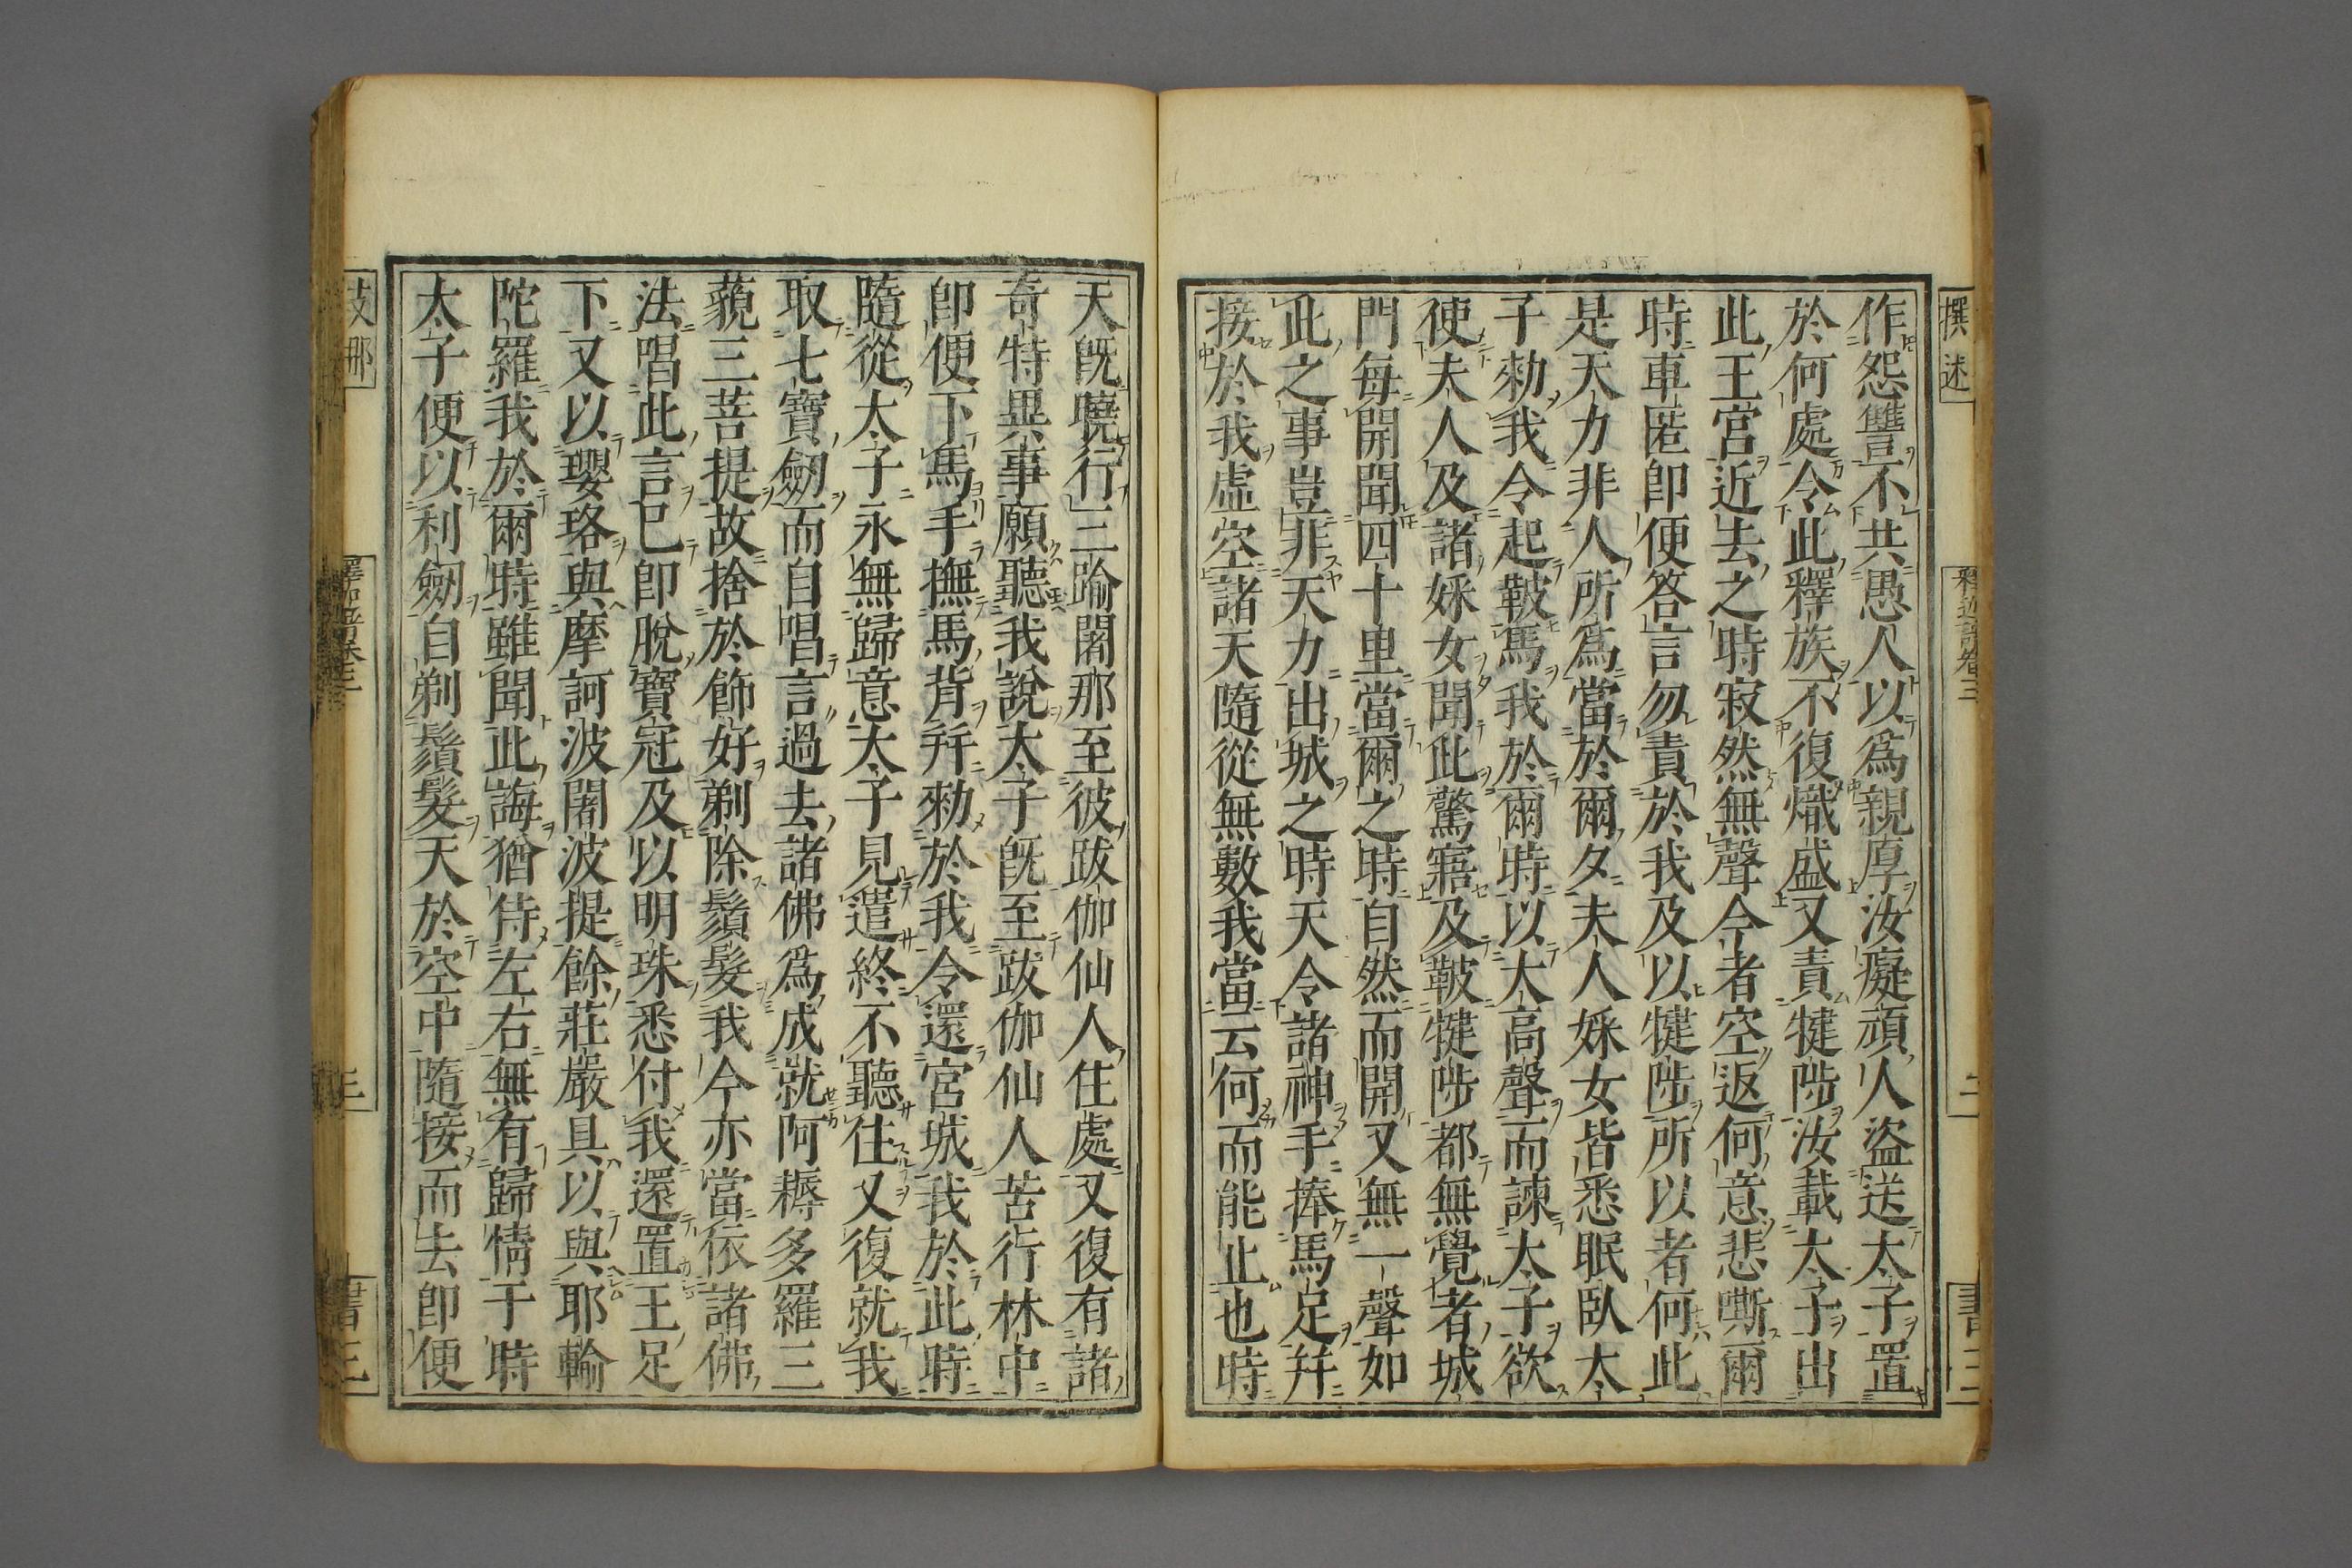 撰述
釋迦譜卷三
二
書三
作怨讐不共愚人以爲親厚汝癡頑人盜送太子置
於何處令此釋族不復熾盛又責犍陟汝載太子出
此王宮近去之時寂然無聲今者空返何意悲嘶爾
時車匿即便答言勿責於我及以犍陟所以者何此
是天力非人所爲當於爾夕夫人婇女皆悉眠臥太
子勑我令起鞁馬我於爾時以大高聲而諫太子欲
使夫人及諸婇女聞此驚寤及鞁犍陟都無覺者城
門每開聞四十里當爾之時自然而開又無一聲如
此之事豈非天力出城之時天令諸神手捧馬足并
接於我虛空諸天隨從無數我當云何而能止也時
天旣曉行三踰闍那至彼跋伽仙人住處又復有諸
奇特異事願聽我說太子旣至跋伽仙人苦行林中
卽便下馬手撫馬背并勑於我令還宮城我於此時
隨從太子永無歸意太子見遣終不聽住又復就我
取七寶劒而自唱言過去諸佛爲成就阿耨多羅三
藐三菩提故捨於飾好剃除鬚髮我今亦當依諸佛
法唱此言已卽脫寶冠及以明珠悉付我還置王足
下又以瓔珞與摩訶波闍波提餘莊嚴具以與耶輸
陀羅我於爾時雖聞此誨猶侍左右無有歸情于時
太子便以利劒自剃鬚髮天於空中隨接而去卽便
支那
三
書三